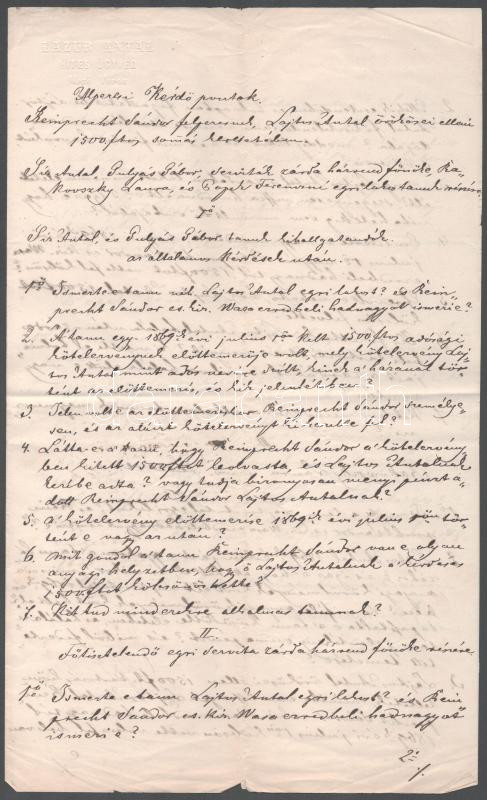 LAZUR ANTAL
HITES ÜGYVÉD
Alperesi Kérdő pontok.
Reinprecht Sándor felperesnek, Lajtos Antal örökösei elleni
1500 ftos somás keresetében.
Sir Antal, Gulyás Gábor, Serviták zárda házrend főnöke, Ra-
kovszky Laura, és Ferenczné egri lakos tanuk részére.
I.
Sir Antal, és Gulyás Gábor tanuk kihallgatandók
az általános kérdések után.
1ső Ismerte e tanu néh. Lajtos Antal egri lakost? és Rein„
precht Sándor cs. kir. Wasa ezredbeli hadnagyot ismeri e?
2. A tanu egy 1869ik évi julius kelt 1500 ftos adósági
kötelezvénynek előttemezője volt, mely kötelezvény Laj„
tos Antal mint adós nevére szólt, kinek a házánál tör„
tént az előttemezés, és kik jelenlétében?
3. Jelen volt e az előttemezéskor Reinprecht Sándor személye„
sen, és az aláirt kötelezvényt
4. Látta-e a tanu, hogy Reinprecht Sándor a kötelezvény
ben kitett 1500 ftot leolvasta, és Lajtos Antalnak
kezibe adta? vagy tudja bizonyosan menyi pénzt a„
dott Reinprecht Sándor Lajtos Antalnak?
5. A kötelezvény előttemezése 1869ik évi julius tör„
tént e vagy az után?
6. Mit gondol a tanu Reinprecht Sándor van e olyan
anyagi helyzetben, hogy ő Lajtos Antalnak a kérdéses
1500 ftot kölcsönözhette?
7. Kit tud mindezekre alkalmas tanunak?
II.
Főtisztelendő egri servita zárda házrend főnöke részére.
1ső Ismerte e tanu Lajtos Antal egri lakost? és Rein
precht Sándor cs. kir. Wasa ezredbeli hadnagyot
ismeri e?
2.